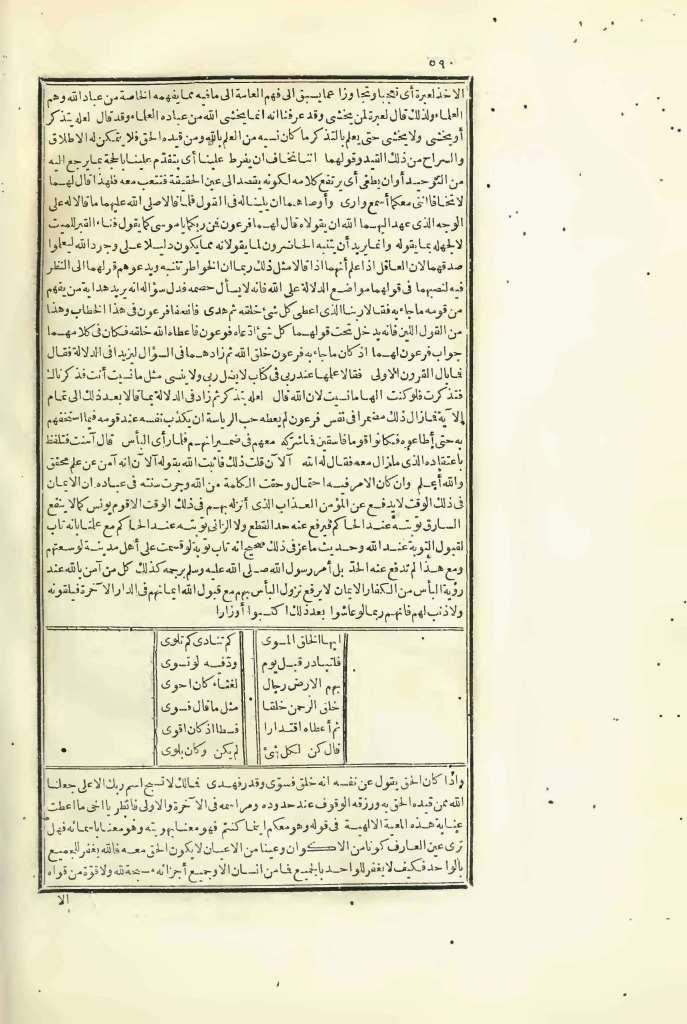 ٥٩٠
الآخذ لعبرة أى تعجبا وتجاوزا عما يسبق الى فهم العامة الى ما فيه مما يفهمه الخاصة من عباد الله وهم
العلماء ولذلك قال لعبرة لمن يخشى وقد عرفنا انه انما يخشى الله من عباده العلماء وقد قال لعله يتذكر
أو يخشى ولا يخشى حتى يعلم بالتذكر ما كان نسيه من العلم بالله ومن قيده الحق فلا يتمكن له الاطلاق
والسراح من ذلك القيد وقولهما اننا نخاف ان يفرط علينا أى يتقدم علينا بالحجة بما يرجع اليه
من التوحيد أو ان يطغى أى يرتفع كلامه لكونه يقصد الى عين الحقيقة فنتعب معه فلهذا قال لهما
لا تخافا اننى معكما أسمع وأرى وأوصاهما ان يلينا له فى القول فلما قالا صلى الله عليهما ما قالا له على
الوجه الذى عهد اليهما الله ان يقولاه قال لهما فرعون فمن ربكما يا موسى كما يقول فتاء القبر للميت
لا لجهله بما يقوله وانما يريد أن يتنبه الحاضرون لما يقولانه مما يكون دليلا على وجود الله ليعلموا
صدقهما لان العاقل اذا علم أنهما اذا قالا مثل ذلك ربما ان الخواطر تتنبه ويدعوهم قولهما الى النظر
فيه لنصبهما فى قولهما مواضع الدلالة على الله فانه لا يسأل خصمه فدل سؤاله انه يريد هداية من يفهم
من قومه ما جاء به فقالا ربنا الذى اعطى كل شئ خلقه ثم هدى فانتفعا فرعون فى هذا الخطاب وهذا
من القول اللين فانه يدخل تحت قولهما كل شئ ادعاه فرعون فاعطاه الله خلقه فكان فى كلامهما
جواب فرعون لهما اذ كان ما جاء به فرعون خلق الله ثم زادهما فى السؤال ليزيدا فى الدلالة فقال
فما بال القرون الاولى فقالا علمها عند ربى فى كتاب لا يضل ربى ولا ينسى مثل ما نسيت أنت فذكرناك
فتذكرت فلو كنت الها ما نسيت لان الله قال لعله يتذكر ثم زاد فى الدلالة بما قالا بعد ذلك الى تمام
الآية فما زال ذلك مضمرا فى نفس فرعون لم يعطه حب الرياسة ان يكذب نفسه عند قومه فيما استخفهم
به حتى أطاعوه فكانوا قوما فاسقين فما شركه معهم فى ضميرانهم فلما رأى البأس قال آمنت فتلفظ
باعتقاده الذى ما زال معه فقال له الله آلآن قلت ذلك فاثبت الله بقوله آلآن انه آمن عن علم محقق
والله أعلم وان كان الامر فيه احتمال وحقت الكلمة من الله وجرت سنته فى عباده ان الايمان
فى ذلك الوقت لا يدفع عن المؤمن العذاب الذى أنزله بهم فى ذلك الوقت الا قوم يونس كما لا ينفع
السارق توبته عند الحاكم فيرفع عنه حد القطع ولا الزانى توبته عند الحاكم مع علمنا بانه تاب
لقبول التوبة عند الله وحديث ماعز فى ذلك صحيح انه تاب توبة لو قسمت على أهل مدينة لوسعتهم
ومع هذا لم تدفع عنه الحد بل أمر رسول الله صلى الله عليه وسلم برجمه كذلك كل من آمن بالله عند
رؤية البأس من الكفار الايمان لا يرفع نزول البأس بهم مع قبول الله ايمانهم فى الدار الآخرة فيلقونه
ولا ذنب لهم فانهم ربما لو عاشوا بعد ذلك اكتسبوا أوزارا
ايها الخلق المسوى كم تنادى كم تلوى
فلتبادر قبل يوم وتفه لو تسوى
بهم الارض رجال لغثاء كان احوى
خلق الرحمن خلقا مثل ما قال فسوى
ثم أعطاه اقتدارا فسطا اذ كان اقوى
قال كن لكل شئ لم يكن وكان بلوى
واذا كان الحق يقول عن نفسه انه خلق فسوى وقدر فهدى فمالك لا تسبح اسم ربك الاعلى جعلنا
الله ممن قيده الحق به ورزقه الوقوف عند حدوده ومراسمه فى الآخرة والاولى فانظر يا اخى ما اعطت
عناية هذه المعية الالهية فى قوله وهو معكم اينما كنتم فهو معنا بهويته وهو معنا باسمائه فهل
ترى عين العارف كونا من الاكوان وعينا من الاعيان لا يكون الحق معه فالله يغفر للجميع
بالواحد فكيف لا يغفر للواحد بالجميع فما من انسان الا وجميع أجزائه مسبحة لله ولا قوة من قواه
الا